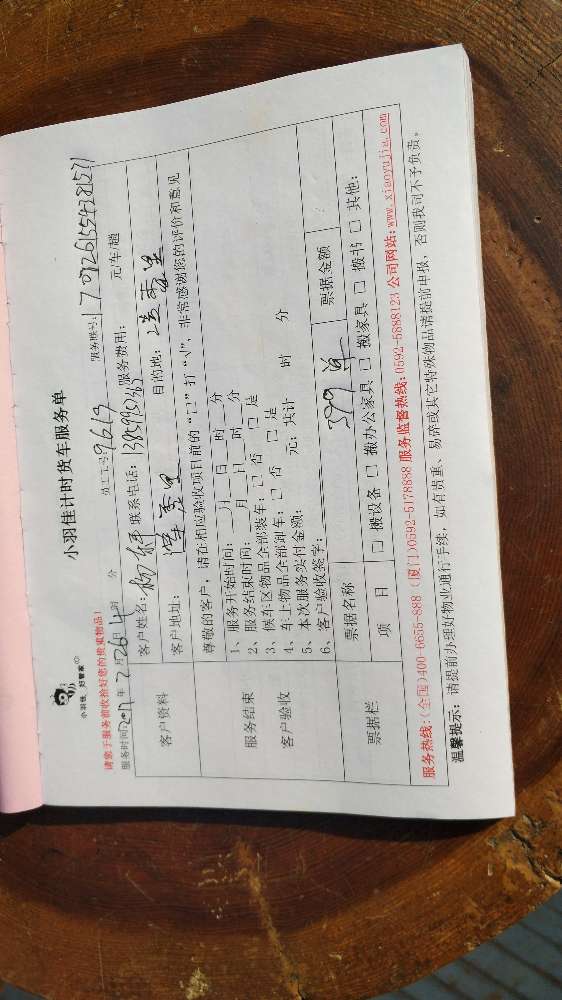 小羽佳计时货车服务单
小羽佳，好管家
请您于服务前收拾好您的贵重物品！
员工工号：9613 服务账号：
服务时间：2017年2月26日 时 分
客户资料
客户姓名： 联系电话： 服务费用： 元/车/趟
客户地址： 目的地：
服务结束
客户验收
尊敬的客户，请在相应验收项目前的“□”打“√”，非常感谢您的评价和意见
1、服务开始时间： 月 日 时 分
2、服务结束时间： 月 日 时 分
3、候车区物品全部装车：□ 否 □ 是
4、车上物品全部卸车：□ 否 □ 是
5、本次服务实付金额： 元；共计 时 分
6、客户验收签字：
票据栏
票据名称 票据金额
项 目 □ 搬设备 □ 搬办公家具 □ 搬家具 □ 搬书 □ 其他:
服务热线：(全国)400-6655-888 (厦门)0592-5178888 服务监督热线：0592-5888123 公司网站：www.xiaoyujia.com
温馨提示：请提前办理好物业通行手续，如有贵重、易碎或其它特殊物品请提前申报，否则我司不予负责。